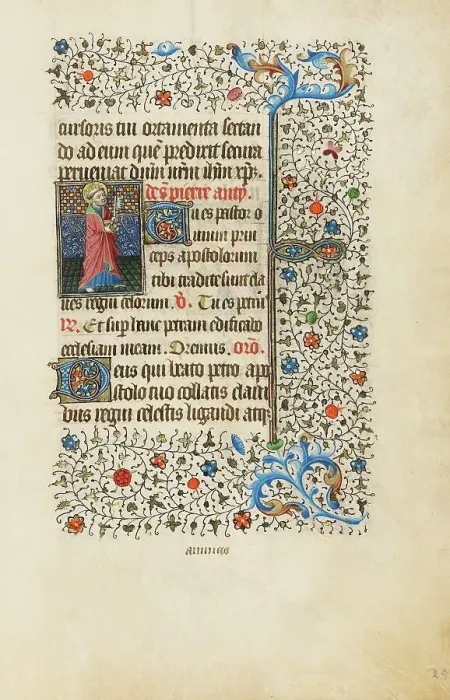 cursoris tui ortamenta sectan
do ad eum quē predixit secura
perueniat dūm nr̄m ihm̄ xp̄.
De s̄ pierre anī.
Tu es pastor o
uium prin
ceps apostolorum
tibi tradite sunt cla
ues regni celorum. V̄. Tu es petrus
R̄. Et sup hanc petram edificabo
ecclesiam meam. Oremus. orō.
Deus qui beato petro apo
stolo tuo collatis claui
bus regni celestis ligandi atq;
animas